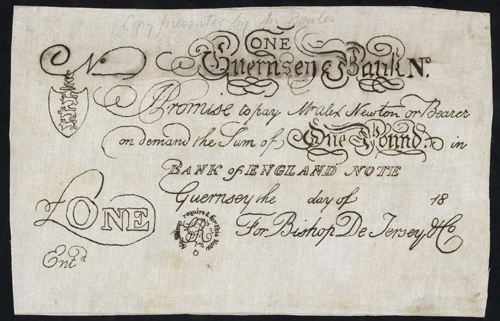 Copy presented by Mr Bowles
ONE
No. Guernsey Bank No.
I Promise to pay Mr Alex Newton or Bearer
on demand the Sum of One Pound in
BANK of ENGLAND NOTE
Guernsey the day of 18
£ONE
For Bishop De Jersey & Co
Entd